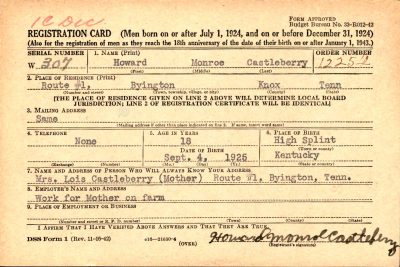 1C Dec
FORM APPROVED
Budget Bureau No. 33-R012-42
REGISTRATION CARD (Men born on or after July 1, 1924, and on or before December 31, 1924)
(Also for the registration of men as they reach the 18th anniversary of the date of their birth on or after January 1, 1943.)
SERIAL NUMBER 1. NAME (Print) ORDER NUMBER
W 307 Howard Monroe Castleberry 12254
(First) (Middle) (Last)
2. PLACE OF RESIDENCE (Print)
Route #1, Byington Knox Tenn
(Number and street) (Town, township, village, or city) (County) (State)
[THE PLACE OF RESIDENCE GIVEN ON LINE 2 ABOVE WILL DETERMINE LOCAL BOARD
JURISDICTION; LINE 2 OF REGISTRATION CERTIFICATE WILL BE IDENTICAL]
3. MAILING ADDRESS
Same
(Mailing address if other than place indicated on line 2. If same, insert word same)
4. TELEPHONE 5. AGE IN YEARS 6. PLACE OF BIRTH
None 18 High Splint
DATE OF BIRTH (Town or county)
Sept. 4, 1926 Kentucky
(Exchange) (Number) (Mo.) (Day) (Yr.) (State or country)
7. NAME AND ADDRESS OF PERSON WHO WILL ALWAYS KNOW YOUR ADDRESS
Mrs. Lois Castleberry (Mother) Route #1, Byington, Tenn.
8. EMPLOYER'S NAME AND ADDRESS
Work for Mother on farm
9. PLACE OF EMPLOYMENT OR BUSINESS
(Number and street or R. F. D. number) (Town) (County) (State)
I AFFIRM THAT I HAVE VERIFIED ABOVE ANSWERS AND THAT THEY ARE TRUE.
DSS Form 1 (Rev. 11-16-42) (OVER) Howard Monroe Castleberry
(Registrant's signature)